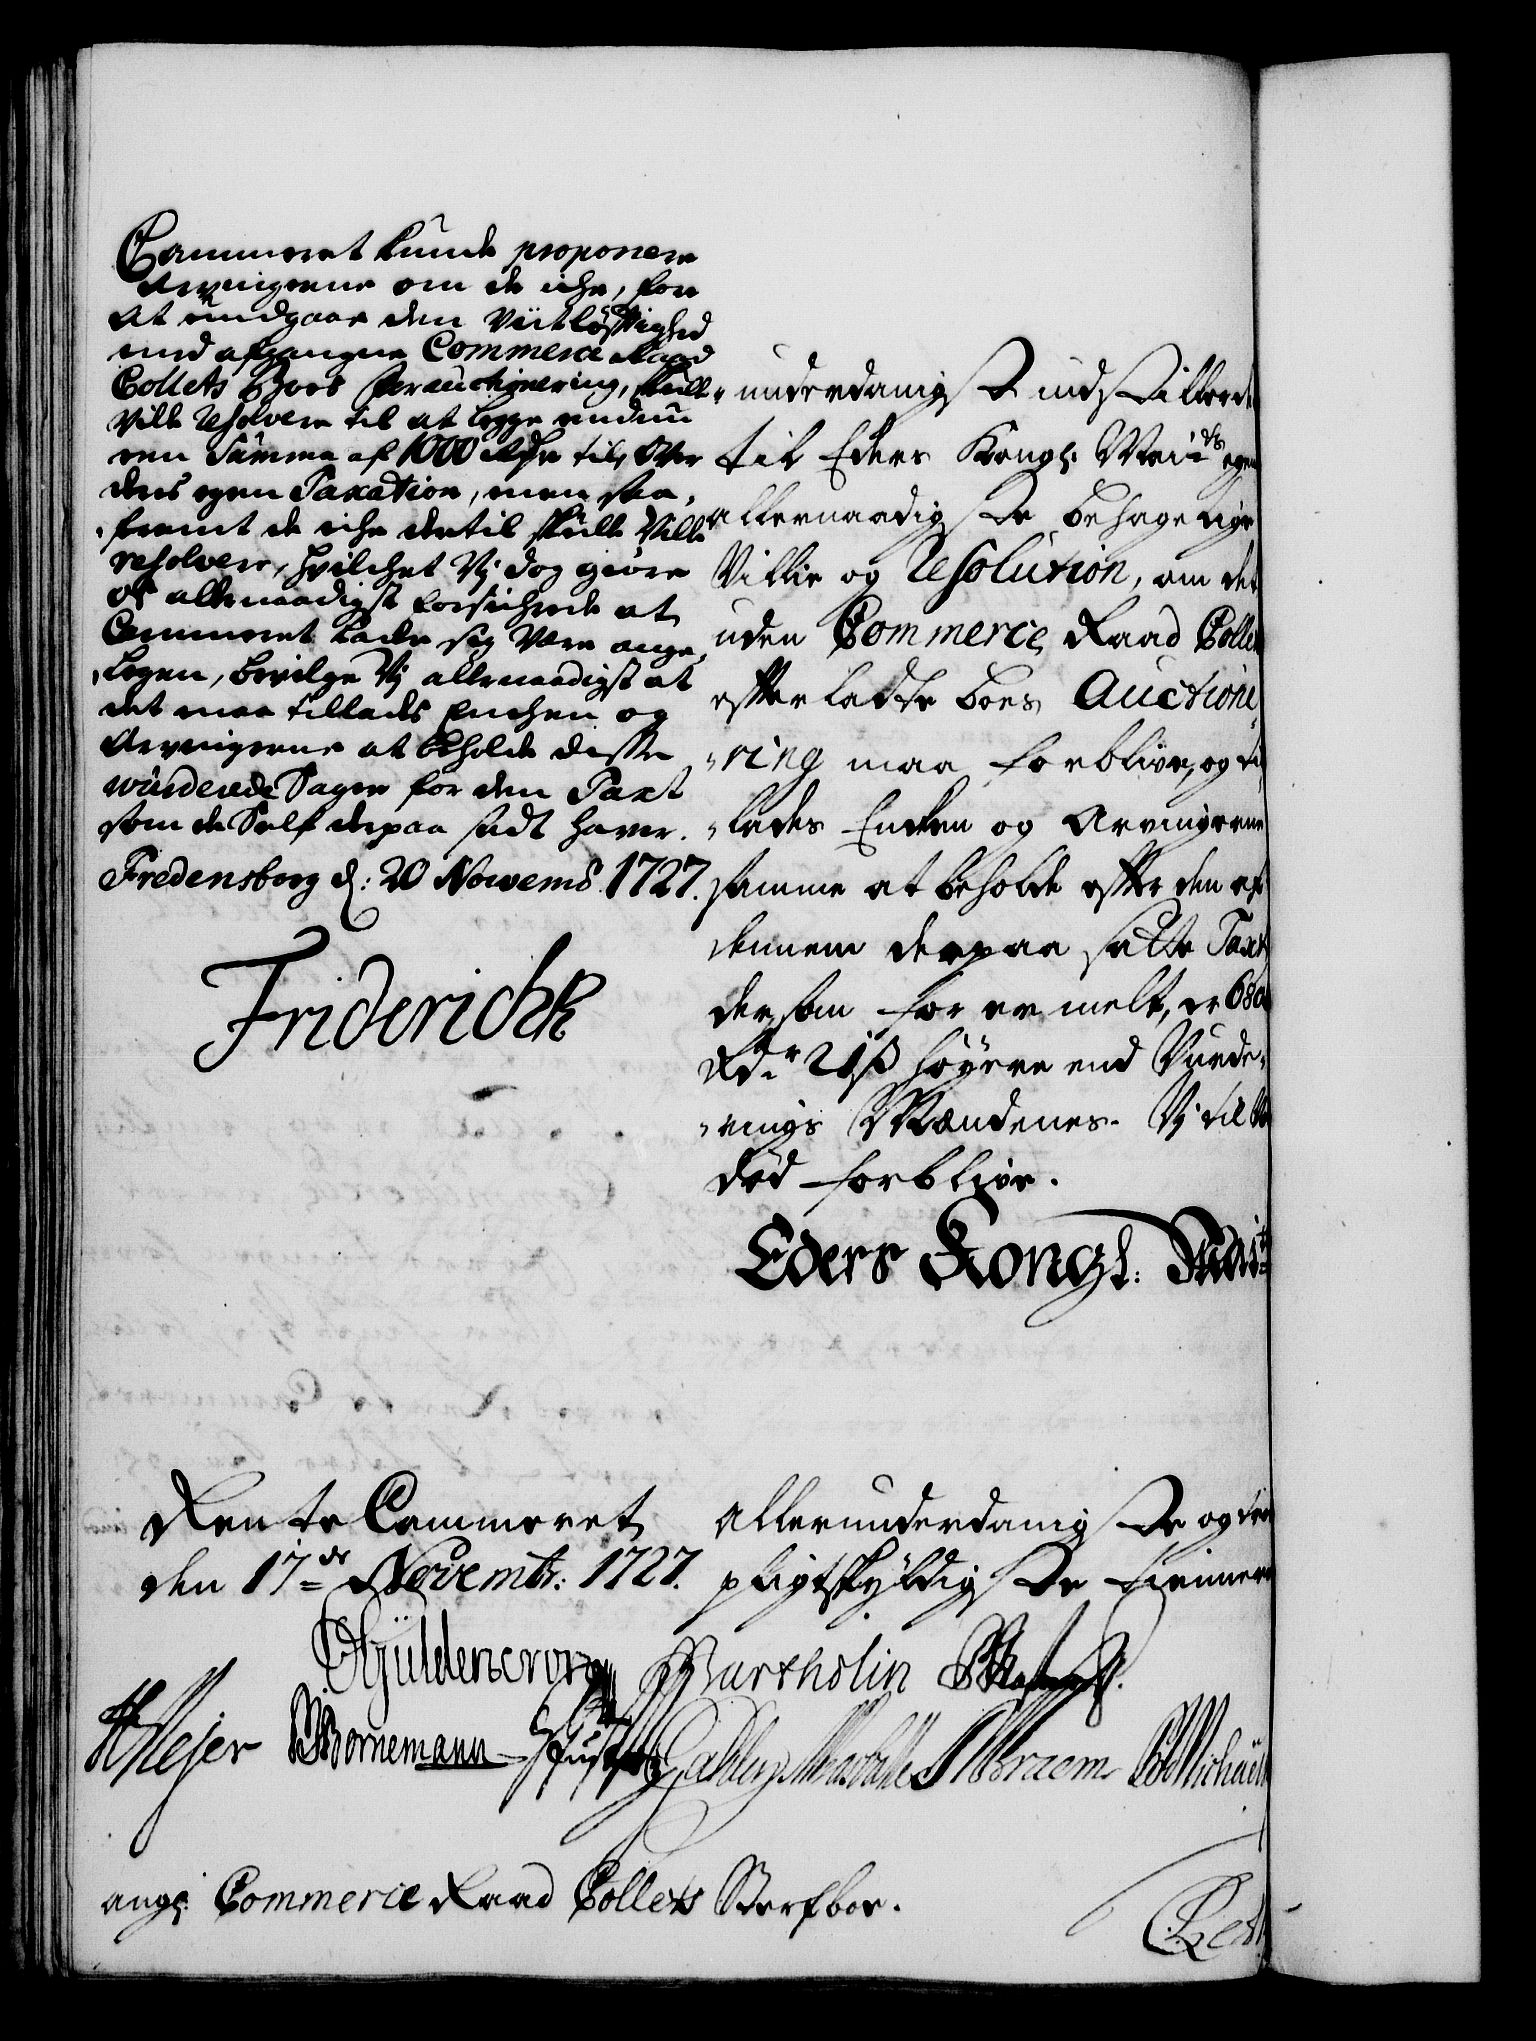 Cammeret kunde proponere
Arvingerne om de iche, for
at undgaae den Viitløftighed
med afgangne Commerce Raad
Collets Boes Forauctionering, skulle
ville resolvere til at legge endnu
een Summa af 1000 Rdr til, over
deris egen Taxation, men saa-
fremt de iche dertil skulle ville
resolvere, hvilchet Vj dog giøre
os allernaadigst forsichrede at
Cammeret lader sig være ange-
legen, bevilge Vj allernaadigst at
det maa tillades Enchen og
Arvingerne at beholde disse
wurderede Sager for den Taxt
som de Self derpaa sadt haver.
Fredensborg d: 20 Novemb. 1727.
Friderich R
underdanigst indstillende
til Eders Kongl: Mai:ts egen
allernaadigste behagelige
Villie og Resolution, om det
uden Commerce Raad Collets
efterladte boes Auctione-
-ring maa forblive, og til-
-lades Enken og Arvingerne
samme at beholde efter den af
dennem derpaa satte Taxt
der som for er melt, er 680
Rdr 21 ß høyere end Vurde-
-rings Mændenes. Vj til
død forblive.
Eders Kongl: Mai:ts
Rente Cammeret
den 17de Novembr: 1727.
Allerunderdanigste og
pligtskyldigste tienere
Güldencrone Bartholin
Meier Bornemann
angl: Commerce Raad Collets Sterfboe.